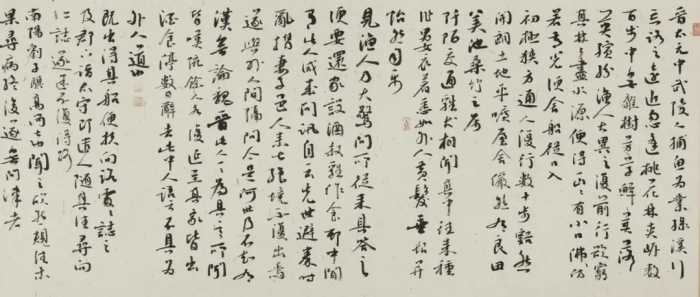 晋太元中武陵人捕魚為業緣溪行
忘路之遠近忽逢桃花林夾岸數
百步中無雜樹芳草鮮美落
英繽紛漁人大異之復前行欲窮
其林林盡水源便得一山山有小口彷彿
若有光便舍船從口入
初極狹才通人復行數十步豁然
開朗土地平曠屋舍儼然有良田
美池桑竹之屬
阡陌交通雞犬相聞其中往來種
作男女衣著悉如外人黃髮垂髫并
怡然自樂
見漁人乃大驚問所從來具答之
便要還家設酒殺雞作食邨中聞
有此人咸來問訊自云先世避秦時
亂率妻子邑人來此絕境不復出焉
遂與外人間隔問今是何世乃不知有
漢無論魏晉此人一一為具言所聞
皆嘆惋餘人各復延至其家皆出
酒食停數日辭去此中人語云不足為
外人道也
既出得其船便扶向路處處誌之
及郡下詣太守即遣人隨其往尋向
所誌遂迷不復得路
南陽劉子驥高尚士也聞之欣然規往未
果尋病終後遂無問津者